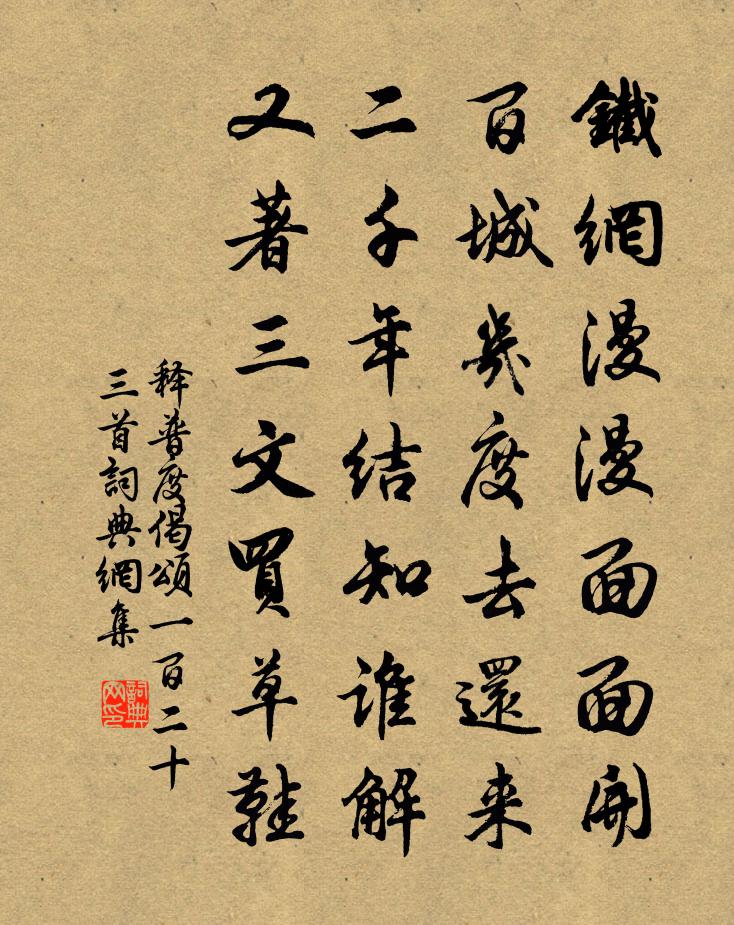 鐵網漫漫面面開
百城幾度去還来
二千年結知誰解
又著三文買草鞋
释普度偈頌一百二十
三首詞典網集
詞典
网印